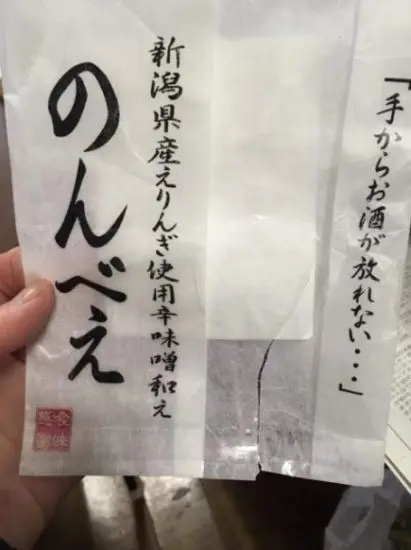 「手からお酒が放れない・・・」
新潟県産えりんぎ使用辛味噌和え
のんべえ